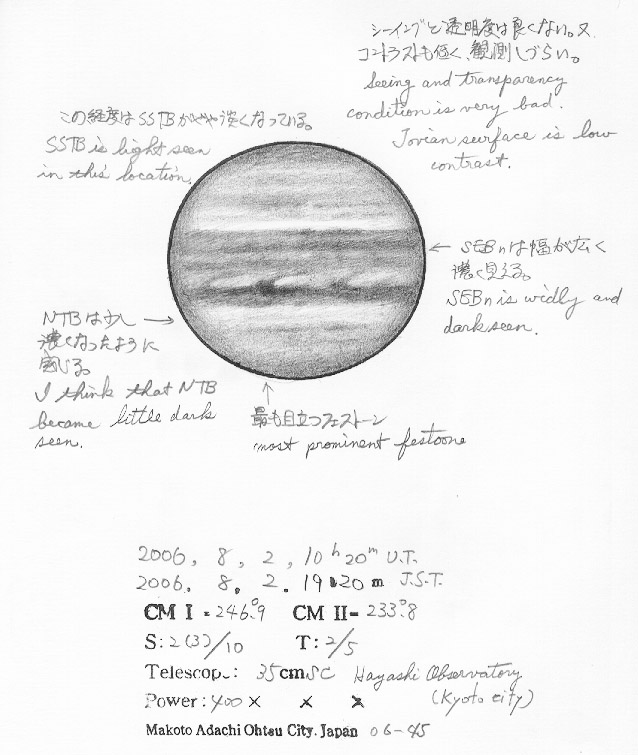 シーイングと透明度は良くない。又
コントラストも低く、観測しづらい。
Seeing and transparency
condition is very bad.
Jovian surface is low
contrast.
この経度はSSTBがやや淡くなっている。
SSTB is light seen
in this location.
← SEBnは幅が広く
濃く見える。
SEBn is widly and
dark seen.
NTBは少し →
濃くなったように
感じる。
I think that NTB
became little dark
seen.
↑
最も目立つフェストーン
most prominent festoone
2006, 8, 2, 10h20m U.T.
2006. 8. 2. 19h20m J.S.T.
CM I = 246.°9 CM II= 233.°8
S: 2(3)/10 T: 2/5
Telescop.: 35cmSC Hayashi Observatory
(Kyoto city)
Power: 400× × ×
Makoto Adachi Ohtsu City. Japan 06-45